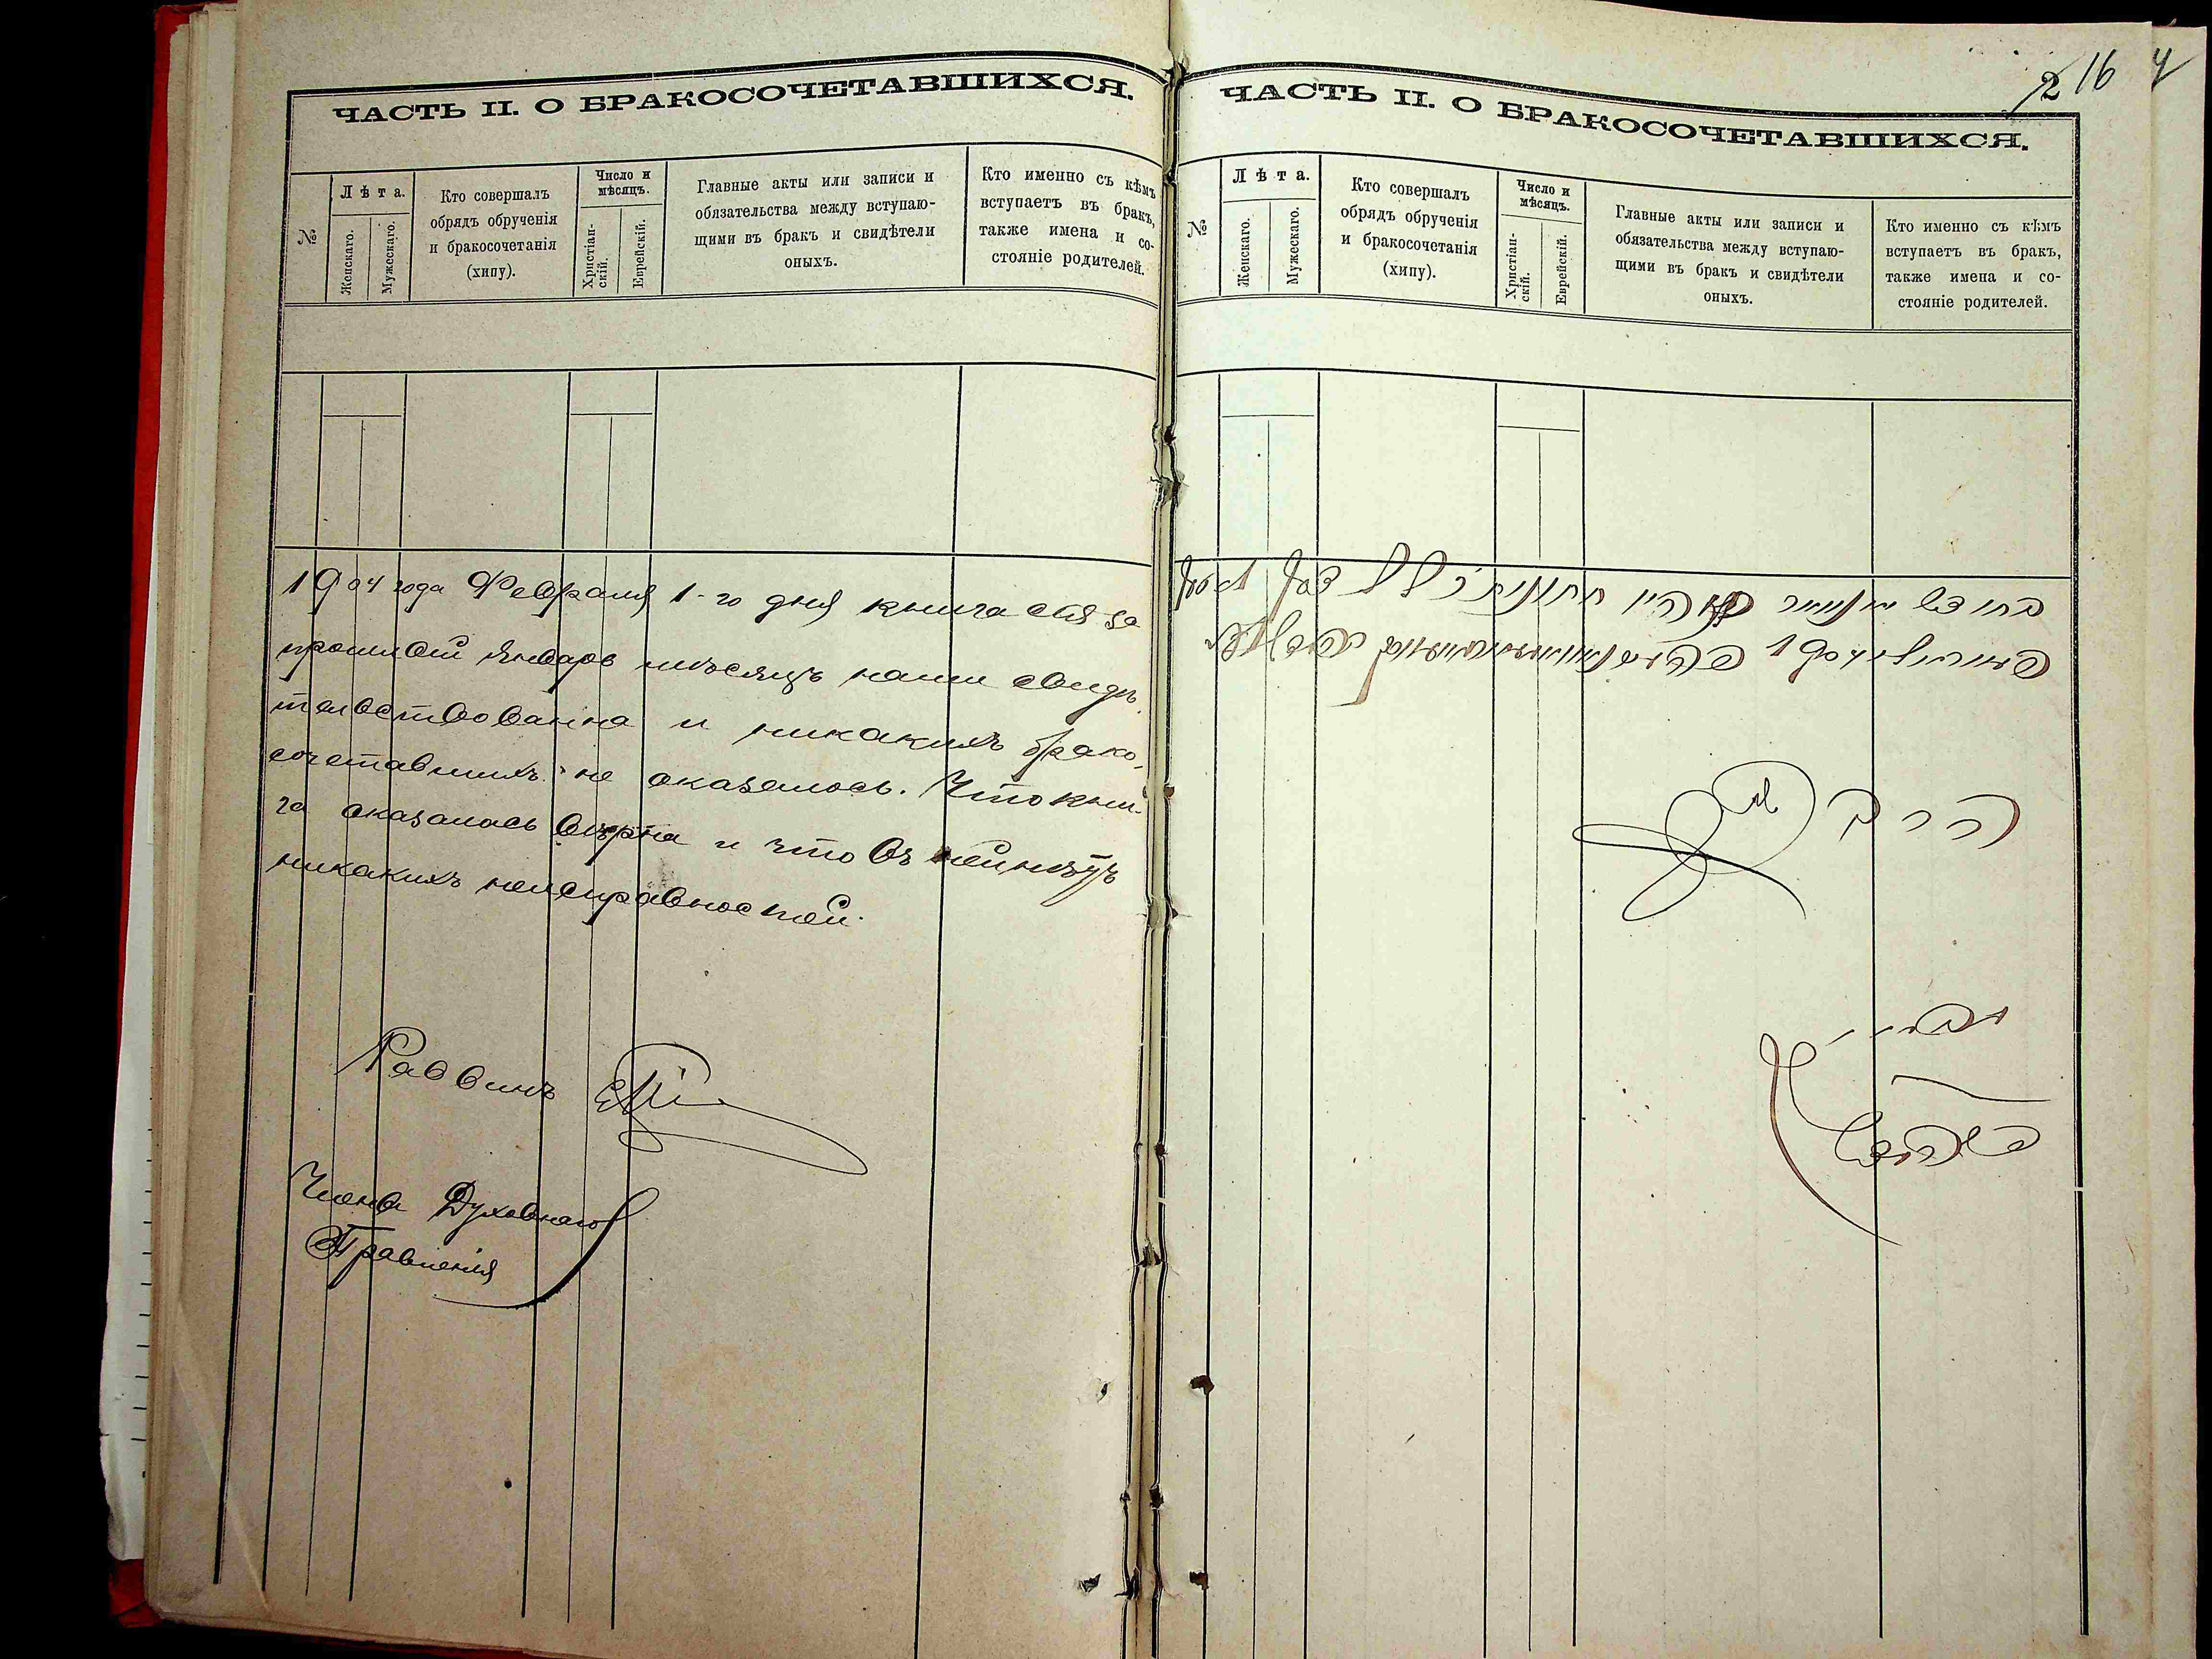 ЧАСТЬ II. О БРАКОСОЧЕТАВШИХСЯ.
№
Лѣта.
Женскаго.
Мужескаго.
Кто совершалъ
обрядъ обрученія
и бракосочетанія
(хипу).
Число и
мѣсяцъ.
Христіан-
скій.
Еврейскій.
Главные акты или записи и
обязательства между вступаю-
щими въ бракъ и свидѣтели
оныхъ.
Кто именно съ кѣмъ
вступаетъ въ бракъ,
также имена и со-
стояніе родителей.
1904 года Февраля 1-го дня книга сія за
прошлый Январь мѣсяцъ нами свидѣ
тельствованна и никакихъ брако-
сочетавшихъ не оказалось. Что кни-
га оказалась вѣрна и что въ ней нѣтъ
никакихъ неисправностей.
Раввинъ
Члены Духовнаго
Правленія
ЧАСТЬ II. О БРАКОСОЧЕТАВШИХСЯ.
2 16 4
№
Лѣта.
Женскаго.
Мужескаго.
Кто совершалъ
обрядъ обрученія
и бракосочетанія
(хипу).
Число и
мѣсяцъ.
Христіан-
скій.
Еврейскій.
Главные акты или записи и
обязательства между вступаю-
щими въ бракъ и свидѣтели
оныхъ.
Кто именно съ кѣмъ
вступаетъ въ бракъ,
также имена и со-
стояніе родителей.
1904